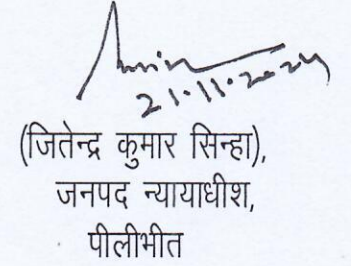 21.11.2024
(जितेन्द्र कुमार सिन्हा),
जनपद न्यायाधीश,
पीलीभीत